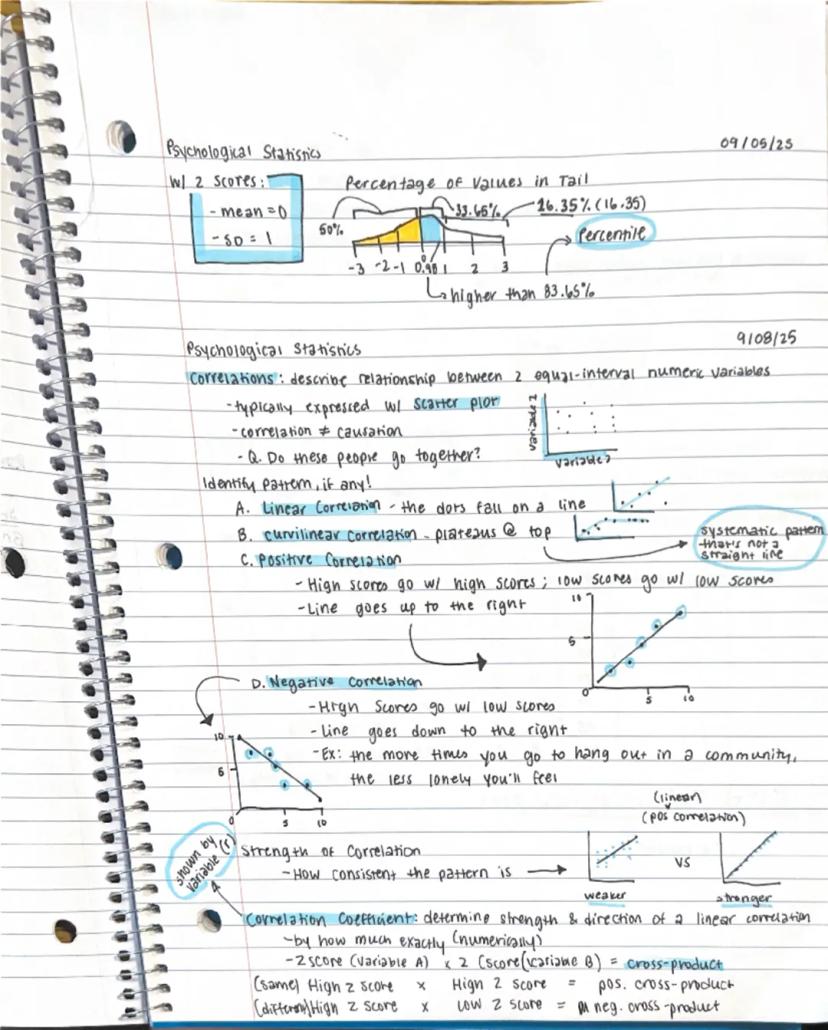 Psychological Statistics 09/05/25
w/ z scores:
- mean = 0
- SD = 1
Percentage of Values in Tail
50% 33.65% 16.35% (16.35)
Percentile
-3 -2 -1 0 0.98 1 2 3
higher than 83.65%
Psychological Statistics 9/08/25
Correlations: describe relationship between 2 equal-interval numeric variables
- typically expressed w/ scatter plot
- correlation ≠ causation
- Q. Do these people go together?
Variable 2
Variable 2
Identify pattern, if any!
A. Linear Correlation - the dots fall on a line
B. curvilinear correlation - plateaus @ top
systematic pattern
that's not a
straight line
C. Positive Correlation
- High scores go w/ high scores; low scores go w/ low scores
- Line goes up to the right
10
5
0 5 10
D. Negative Correlation
- High Scores go w/ low scores
- Line goes down to the right
- Ex: the more times you go to hang out in a community,
the less lonely you'll feel
10
5
0 5 10
(linear)
(pos correlation)
Strength of Correlation
- How consistent the pattern is
vs
weaker stronger
shown by
variable (r)
Correlation Coefficient: determine strength & direction of a linear correlation
- by how much exactly (numerically)
- Z score (variable A) x Z (score(variable B) = cross-product
(same) High z score x High z score = pos. cross-product
(different) High z score x Low z score = neg. cross-product